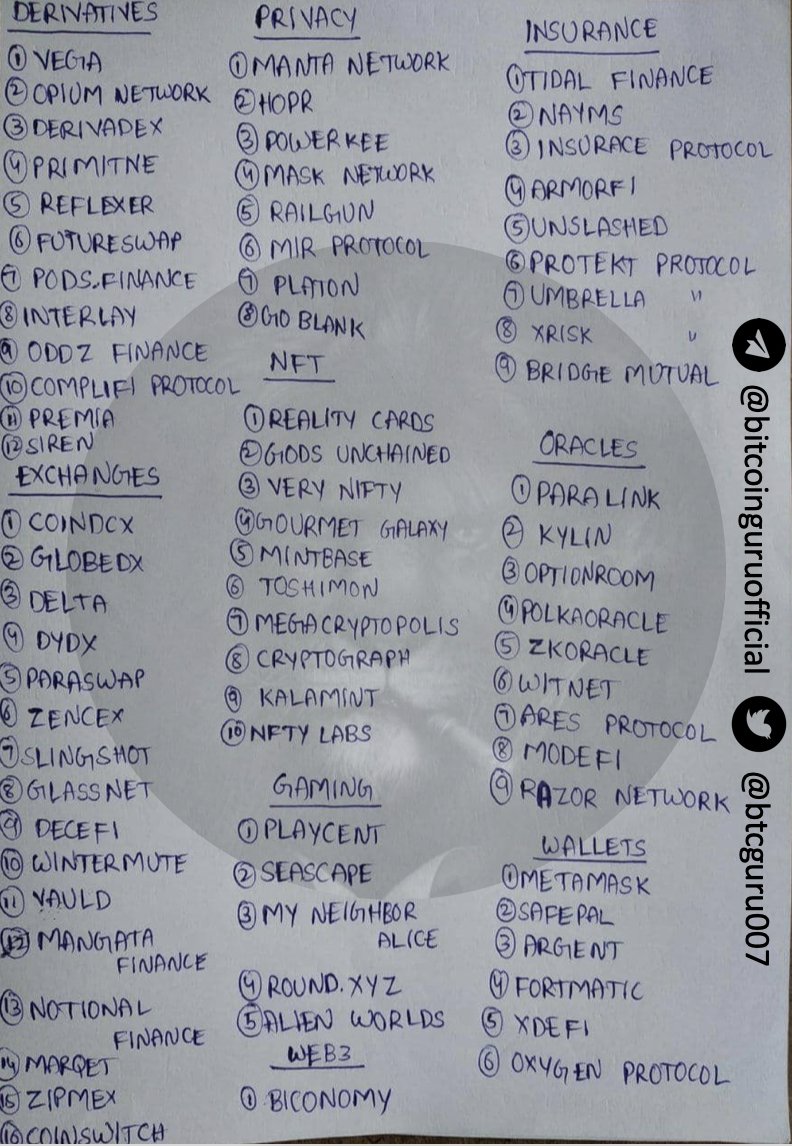 DERIVATIVES
① VEGA
② OPIUM NETWORK
③ DERIVADEX
④ PRIMITNE
⑤ REFLEXER
⑥ FUTURESWAP
⑦ PODS.FINANCE
⑧ INTERLAY
⑨ ODDZ FINANCE
⑩ COMPLIFI PROTOCOL
⑪ PREMIA
⑫ SIREN
EXCHANGES
① COINDCX
② GLOBEDX
③ DELTA
④ DYDX
⑤ PARASWAP
⑥ ZENCEX
⑦ SLINGSHOT
⑧ GLASSNET
⑨ DECEFI
⑩ WINTERMUTE
⑪ VAULD
⑫ MANGATA
FINANCE
⑬ NOTIONAL
FINANCE
⑭ MARQET
⑮ ZIPMEX
⑯ COINSWITCH
PRIVACY
① MANTA NETWORK
② HOPR
③ POWERKEE
④ MASK NETWORK
⑤ RAILGUN
⑥ MIR PROTOCOL
⑦ PLATON
⑧ GO BLANK
NFT
① REALITY CARDS
② GODS UNCHAINED
③ VERY NIFTY
④ GOURMET GALAXY
⑤ MINTBASE
⑥ TOSHIMON
⑦ MEGACRYPTOPOLIS
⑧ CRYPTOGRAPH
⑨ KALAMINT
⑩ NFTY LABS
GAMING
① PLAYCENT
② SEASCAPE
③ MY NEIGHBOR
ALICE
④ ROUND.XYZ
⑤ ALIEN WORLDS
WEB3
① BICONOMY
INSURANCE
① TIDAL FINANCE
② NAYMS
③ INSURACE PROTOCOL
④ ARMORFI
⑤ UNSLASHED
⑥ PROTEKT PROTOCOL
⑦ UMBRELLA "
⑧ XRISK "
⑨ BRIDGE MUTUAL
ORACLES
① PARALINK
② KYLIN
③ OPTIONROOM
④ POLKAORACLE
⑤ ZKORACLE
⑥ WITNET
⑦ ARES PROTOCOL
⑧ MODEFI
⑨ RAZOR NETWORK
WALLETS
① METAMASK
② SAFEPAL
③ ARGENT
④ FORTMATIC
⑤ XDEFI
⑥ OXYGEN PROTOCOL
@bitcoinguruofficial
@btcguru007